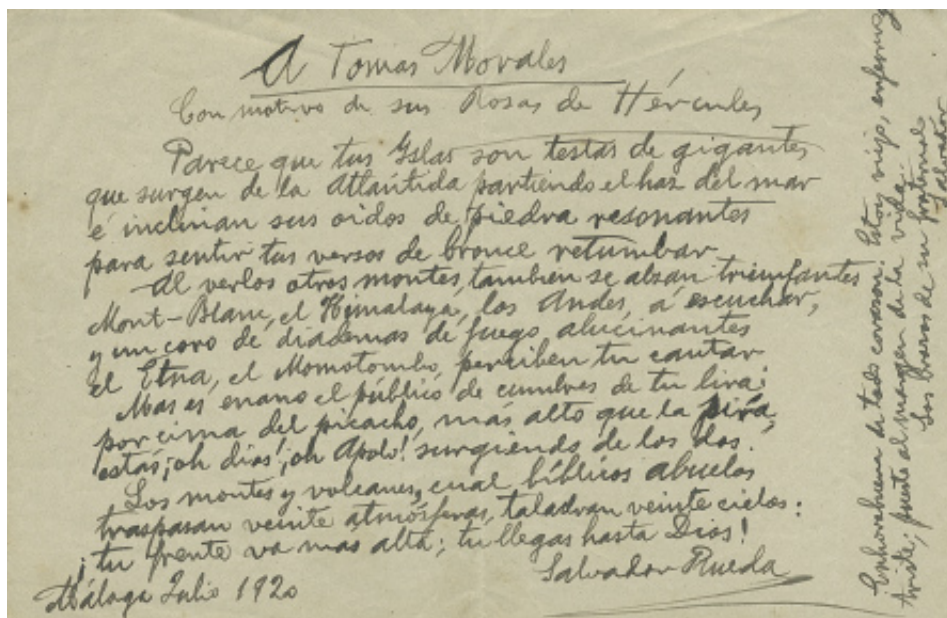 A Tomás Morales
Con motivo de sus Rosas de Hércules
Parece que tus Yslas son testas de gigantes
que surgen de la Atlántida partiendo el haz del mar
é inclinan sus oidos de piedra resonantes
para sentir tus versos de bronce retumbar
Al verlos otros montes, tambien se alzan triunfantes
Mont-Blanc, el Himalaya, los Andes, á escuchar,
y un coro de diademas de fuego alucinantes
el Etna, el Momotombo, perciben tu cantar
Mas es enano el público de cumbres de tu lira:
por cima del picacho, más alto que la pira,
estás ¡oh dios! ¡oh Apolo! surgiendo de los dos.
Los montes y volcanes, cual bíblicos abuelos
traspasan veinte atmósferas, taladran veinte cielos:
¡tu frente va mas alta; tu llegas hasta Dios!
Salvador Rueda
Málaga Julio 1920
Enhorabuena de todo corazon. Estoy viejo, enfermo y
triste; puesto al margen de la vida.
Los brazos de su fraternal
Salvador